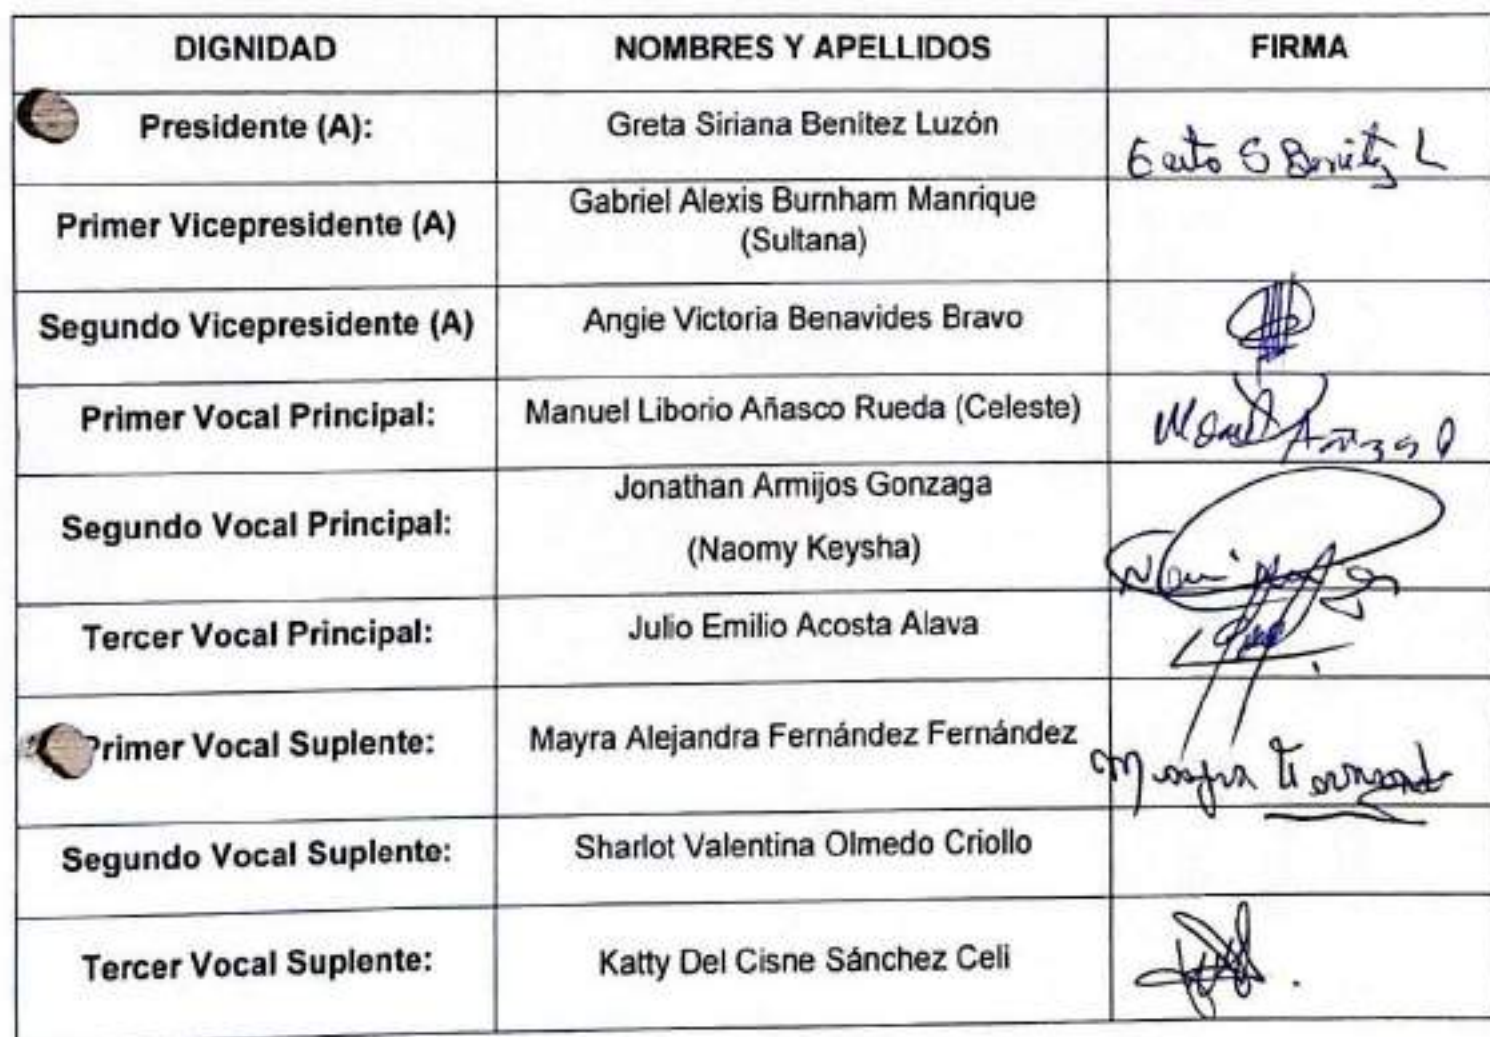 DIGNIDAD NOMBRES Y APELLIDOS FIRMA
Presidente (A): Greta Siriana Benitez Luzón
S Benitez L
Primer Vicepresidente (A) Gabriel Alexis Burnham Manrique
(Sultana)
Segundo Vicepresidente (A) Angie Victoria Benavides Bravo
Primer Vocal Principal: Manuel Liborio Añasco Rueda (Celeste)
Segundo Vocal Principal: Jonathan Armijos Gonzaga
(Naomy Keysha)
Tercer Vocal Principal: Julio Emilio Acosta Alava
Primer Vocal Suplente: Mayra Alejandra Fernández Fernández
Mayra
Segundo Vocal Suplente: Sharlot Valentina Olmedo Criollo
Tercer Vocal Suplente: Katty Del Cisne Sánchez Celi